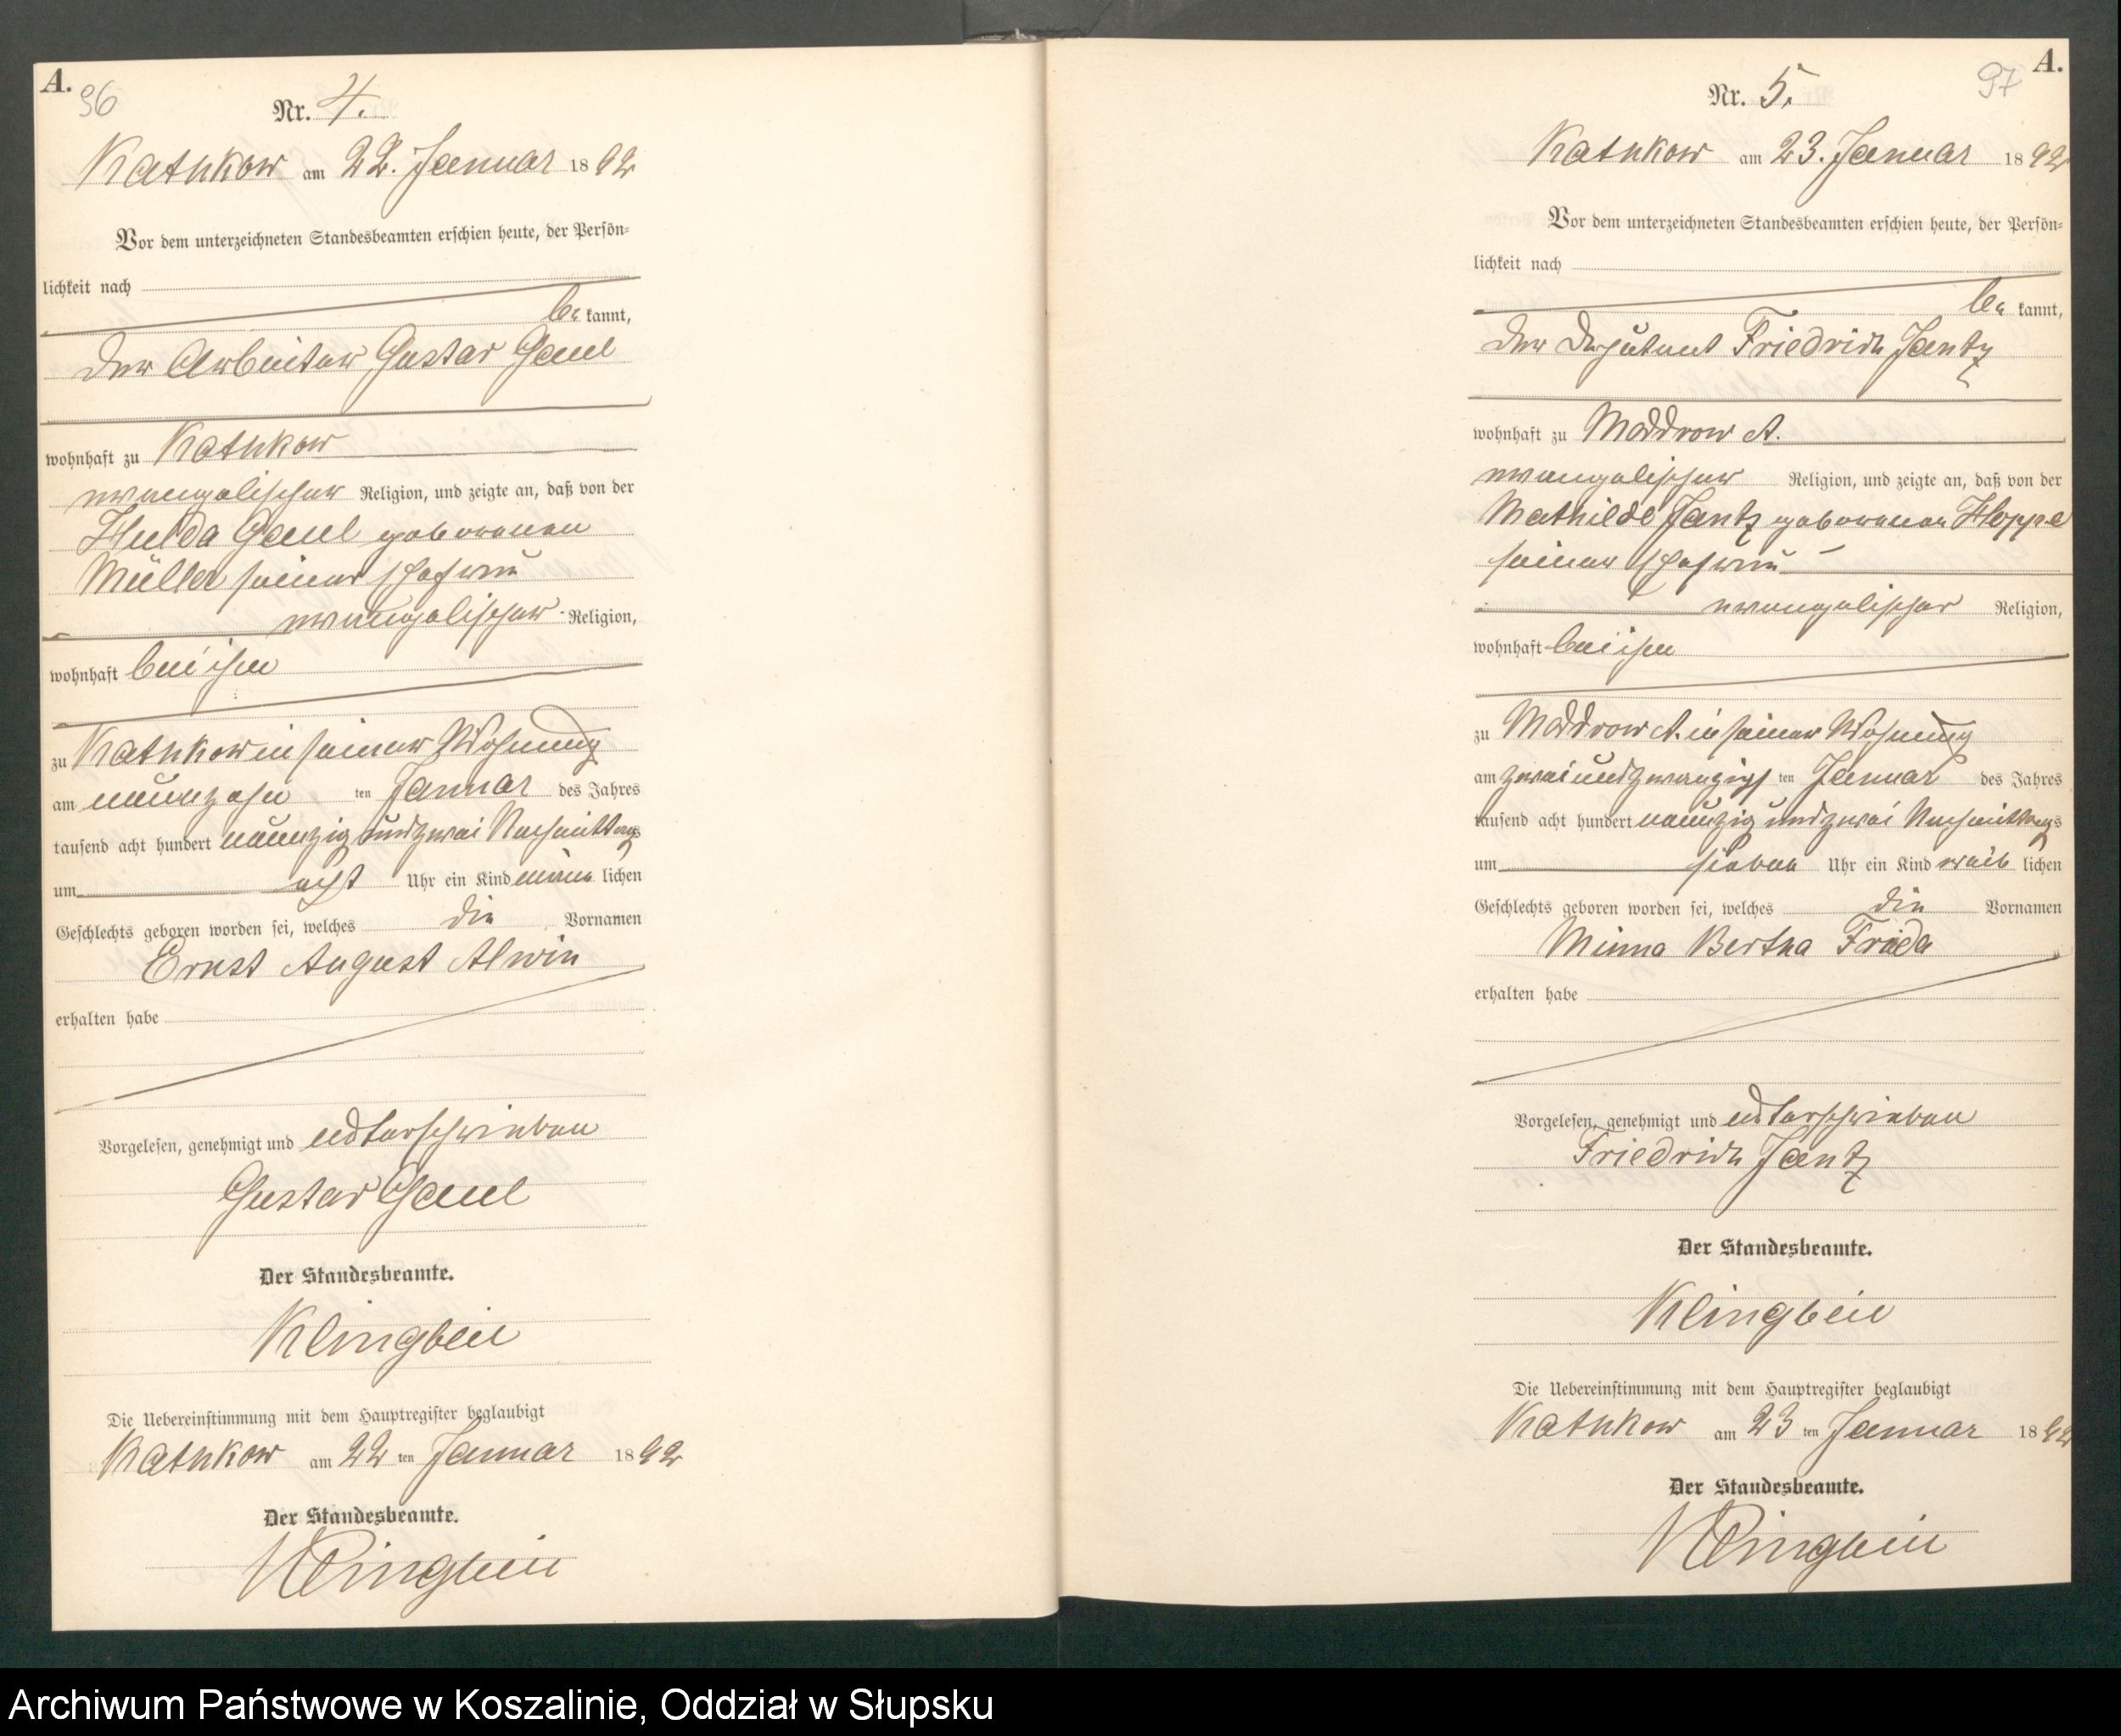 A.
96
Nr. 4.
Kathkow am 22. Januar 1892
Vor dem unterzeichneten Standesbeamten erschien heute, der Persön-
lichkeit nach
be kannt,
der Arbeiter Gustav Gaul
wohnhaft zu Kathkow
evangelischer Religion, und zeigte an, daß von der
Hulda Gaul geborenen
Müller seiner Ehefrau
evangelischer Religion,
wohnhaft bei ihm
zu Kathkow in seiner Wohnung
am neunzehn ten Januar des Jahres
tausend acht hundert neunzig und zwei Nachmittags
um acht Uhr ein Kind männ lichen
Geschlechts geboren worden sei, welches die Vornamen
Ernst August Alwin
erhalten habe
Vorgelesen, genehmigt und unterschrieben
Gustav Gaul
Der Standesbeamte.
Klingbeil
Die Uebereinstimmung mit dem Hauptregister beglaubigt
Kathkow am 22 ten Januar 1892
Der Standesbeamte.
Klingbeil
A.
97
Nr. 5.
Kathkow am 23. Januar 1892
Vor dem unterzeichneten Standesbeamten erschien heute, der Persön-
lichkeit nach
be kannt,
der Deputant Friedrich Jantz
wohnhaft zu Moddrow A.
evangelischer Religion, und zeigte an, daß von der
Mathilde Jantz geborenen Hoppe
seiner Ehefrau
evangelischer Religion,
wohnhaft bei ihm
zu Moddrow A. in seiner Wohnung
am zweiundzwanzigs ten Januar des Jahres
tausend acht hundert neunzig und zwei Nachmittags
um sieben Uhr ein Kind weib lichen
Geschlechts geboren worden sei, welches die Vornamen
Minna Bertha Frieda
erhalten habe
Vorgelesen, genehmigt und unterschrieben
Friedrich Jantz
Der Standesbeamte.
Klingbeil
Die Uebereinstimmung mit dem Hauptregister beglaubigt
Kathkow am 23 ten Januar 1892
Der Standesbeamte.
Klingbeil
Archiwum Państwowe w Koszalinie, Oddział w Słupsku